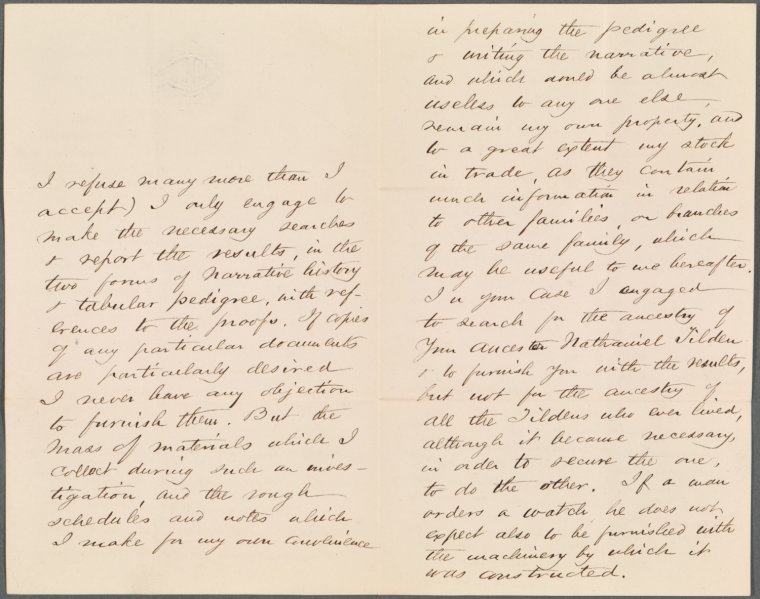 I refuse many more than I
accept) I only engage to
make the necessary searches
& report the results, in the
two forms of narrative history
& tabular pedigree, with ref-
erences to the proofs. If copies
of any particular documents
are particularly desired
I never have any objection
to furnish them. But the
mass of materials which I
collect during such an inves-
tigation, and the rough
schedules and notes which
I make for my own convenience
in preparing the pedigree
& writing the narrative,
and which would be almost
useless to any one else,
remain my own property, and
to a great extent my stock
in trade, as they contain
much information in relation
to other families, or branches
of the same family, which
may be useful to me hereafter.
In your case I engaged
to search for the ancestry of
your ancestor Nathaniel Tilden
& to furnish you with the results,
but not for the ancestry of
all the Tildens who ever lived,
although it became necessary,
in order to secure the one,
to do the other. If a man
orders a watch he does not
expect also to be furnished with
the machinery by which it
was constructed.